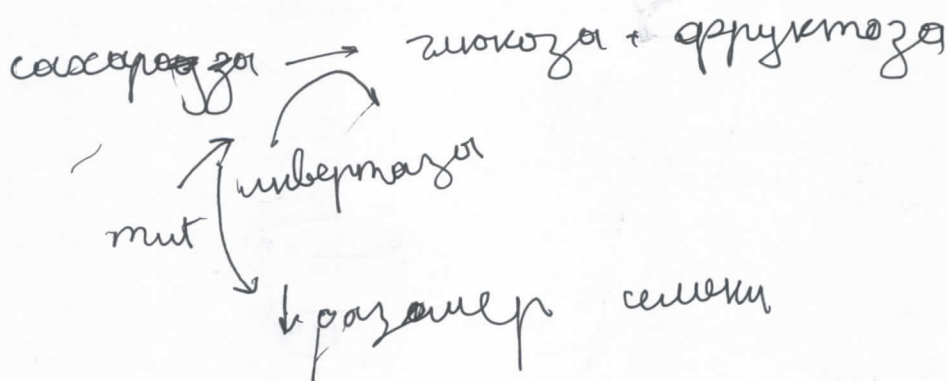 сахароза → глюкоза + фруктоза
инвертаза
mut
↓ размер семени